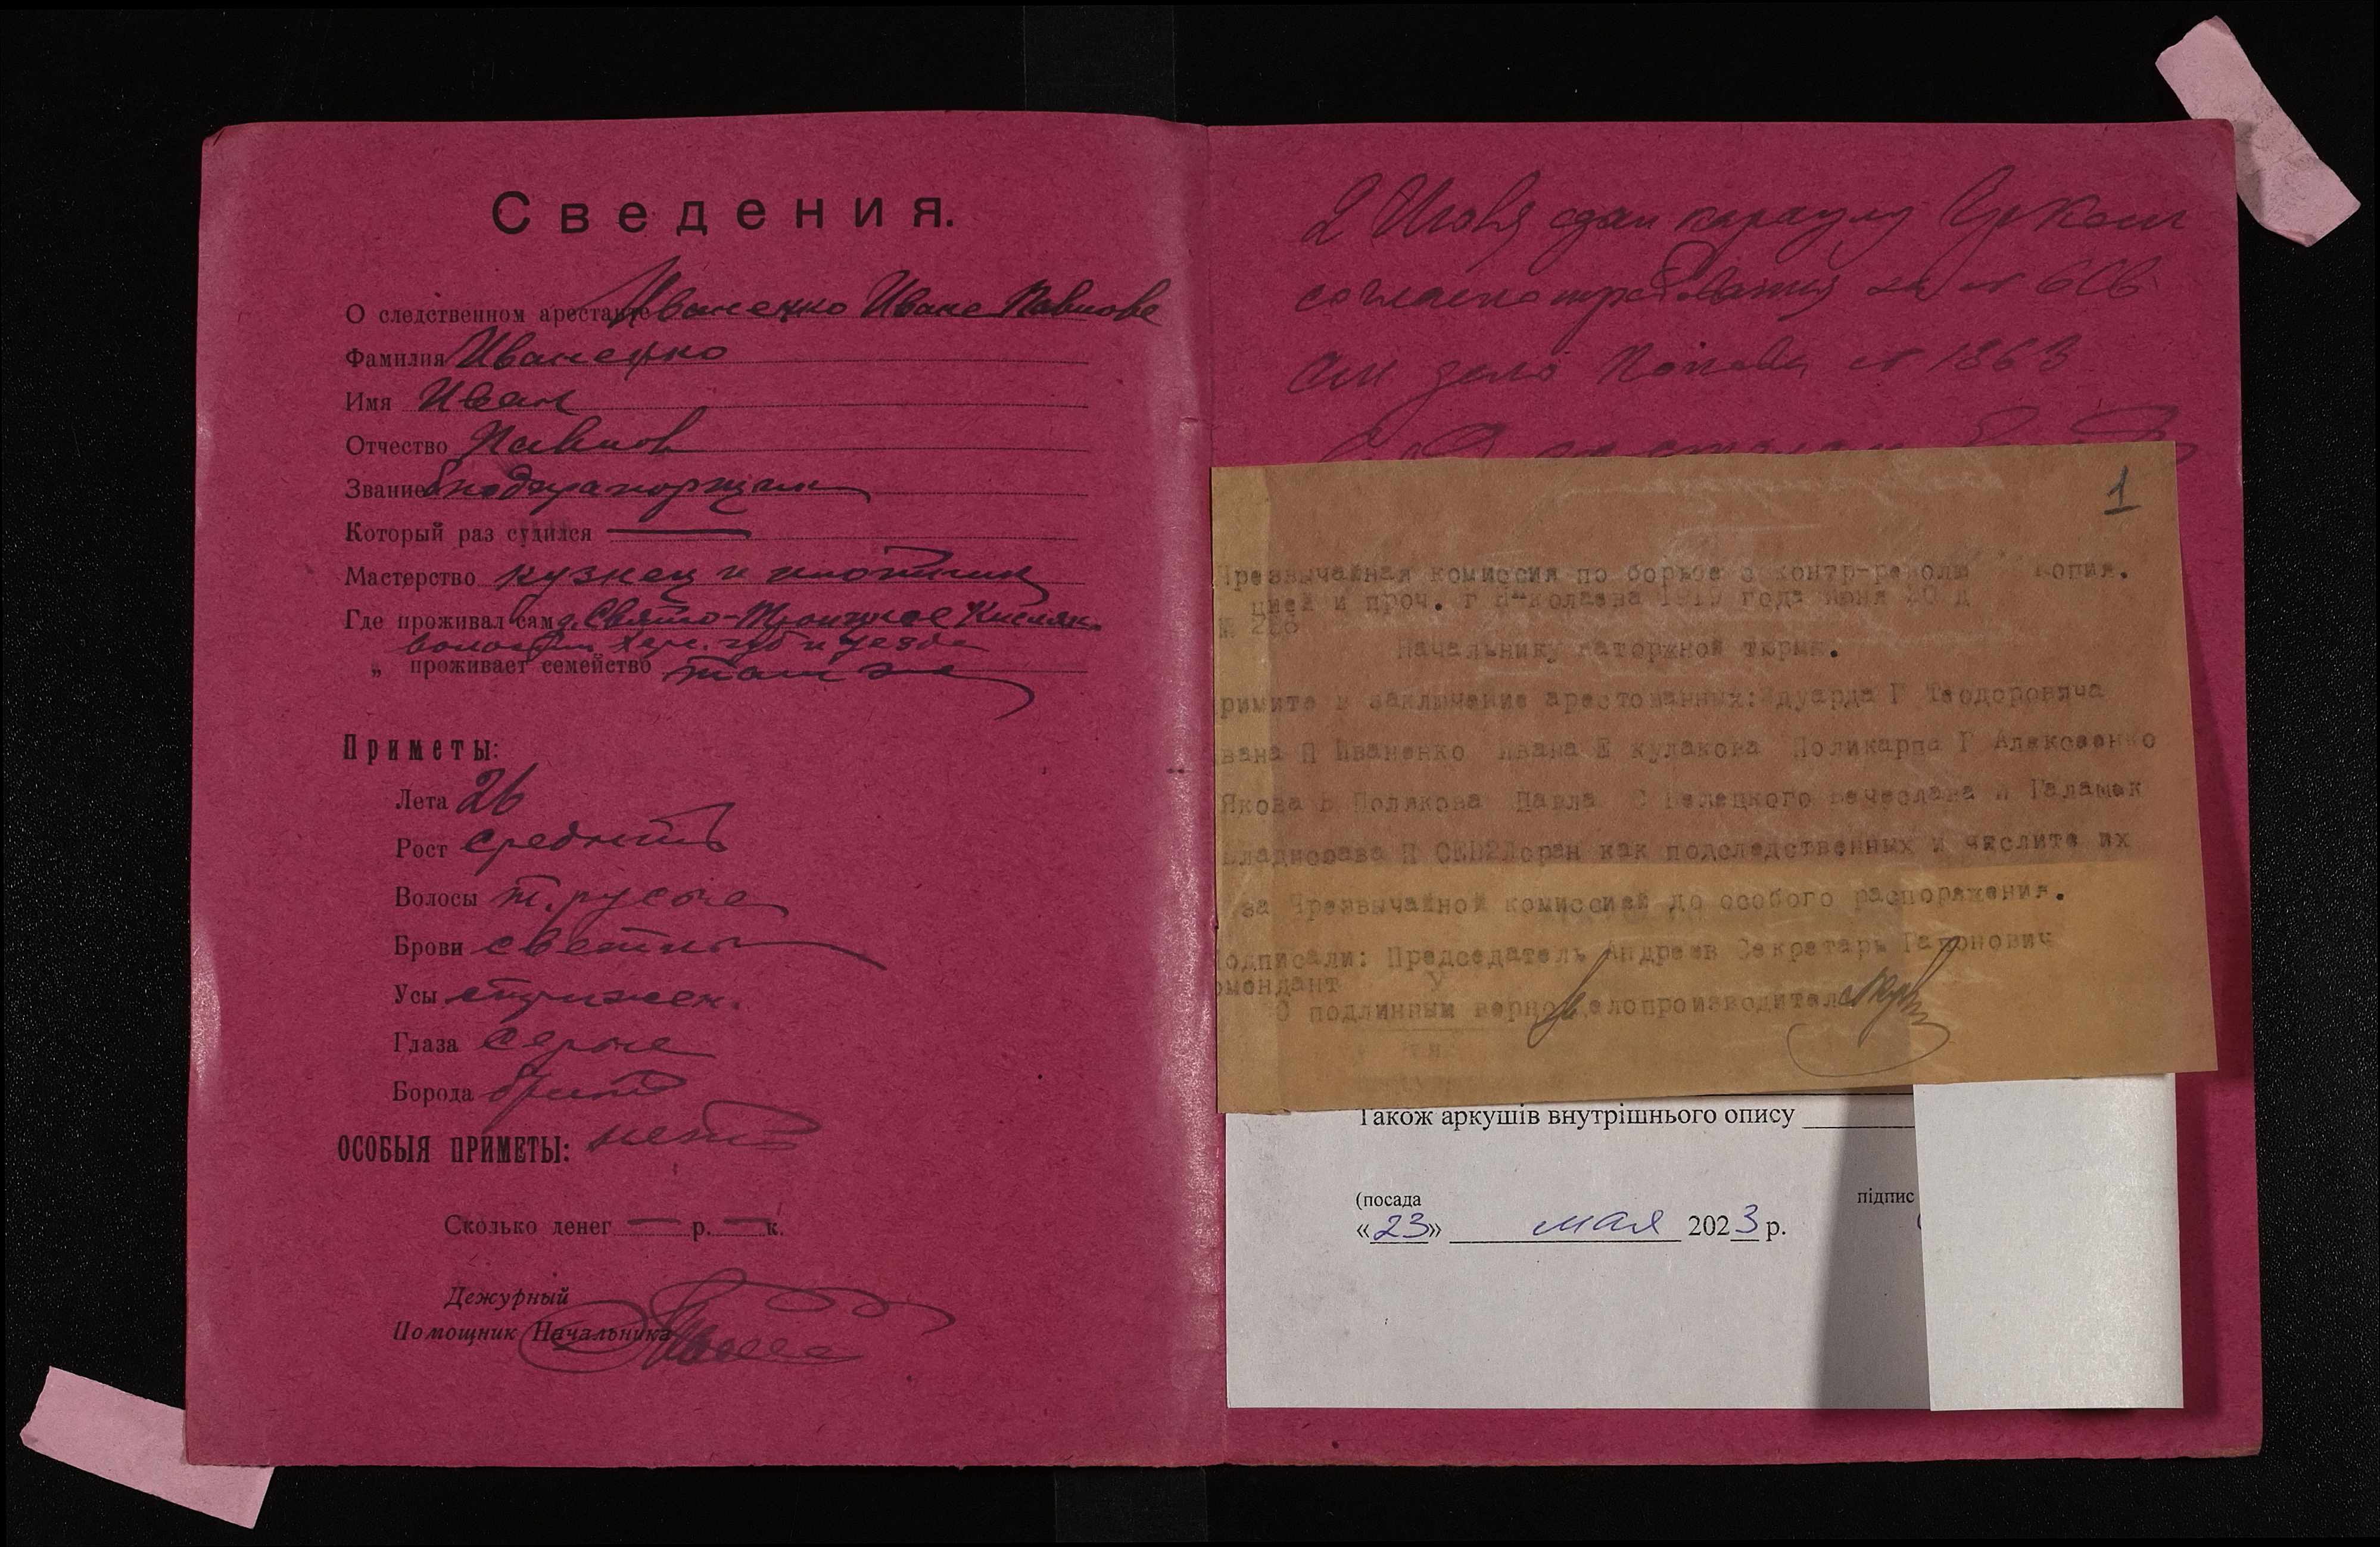 Сведения.
О следственном арестанте Иваненко Иване Павлове
Фамилия Иваненко
Имя Иван
Отчество Павлов
Звание подпрапорщик
Который раз судился —
Мастерство кузнец и плотник
Где проживал сам д. Свято-Троицкое Кисляк.
волости Хер. губ и уезда
„ проживает семейство там же
Приметы:
Лета 26
Рост средний
Волосы т. русые
Брови светлы
Усы стрижен.
Глаза серые
Борода брит
ОСОБЫЯ ПРИМЕТЫ: нет
Сколько денег — р. — к.
Дежурный
Помощник Начальника
2 Июля сдан караулу
согласно требования за № 606
См дело Попова № 1863
1
Чрезвычайная комиссия по борьбе с контр-револю копия.
цией и проч. г Николаева 1919 года июня 20 д
№
Начальнику каторжной тюрьмы.
римите в заключение арестованных: Эдуарда Г Теодоровича
вана П Иваненко Ивана Е кулакова Поликарпа Г Алексеенко
Якова В Полякова Павла С Белецкого вечеслава И Галамок
Владислава И как подследственных и числите их
за Чрезвычайной комиссией до особого распоряжения.
одписали: Председатель Андреев Секретарь Гапонович
омендант
С подлинным верно делопроизводитель
Також аркушів внутрішнього опису
(посада підпис
«23» мая 2023 р.